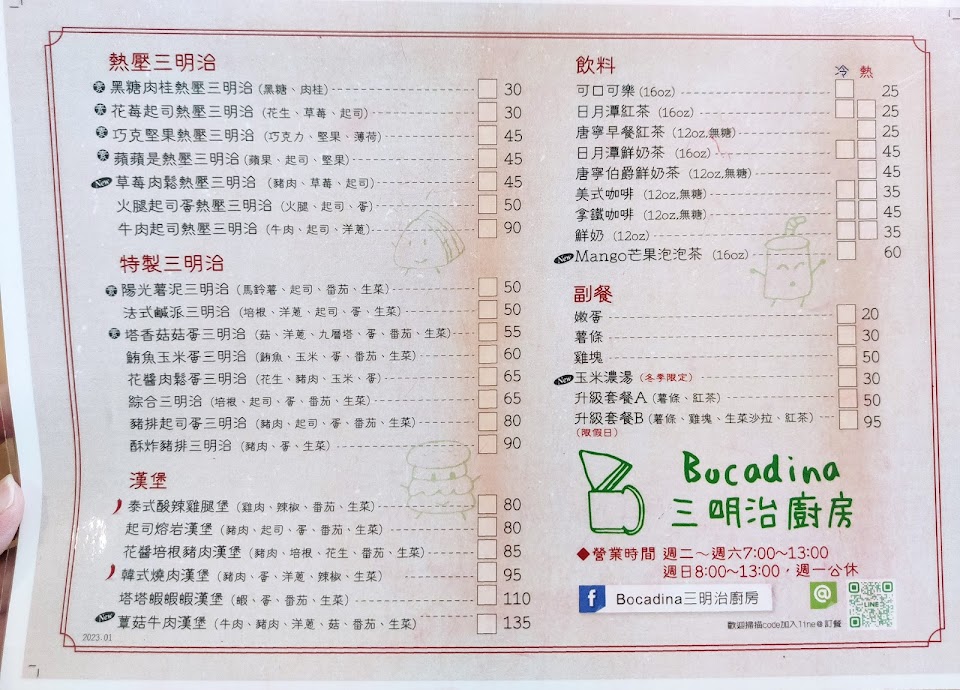 熱壓三明治
素 黑糖肉桂熱壓三明治 (黑糖、肉桂) 30
素 花莓起司熱壓三明治 (花生、草莓、起司) 30
素 巧克堅果熱壓三明治 (巧克力、堅果、薄荷) 45
素 蘋蘋是熱壓三明治 (蘋果、起司、堅果) 45
New 草莓肉鬆熱壓三明治 (豬肉、草莓、起司) 45
火腿起司蛋熱壓三明治 (火腿、起司、蛋) 50
牛肉起司熱壓三明治 (牛肉、起司、洋蔥) 90
特製三明治
素 陽光薯泥三明治 (馬鈴薯、起司、番茄、生菜) 50
法式鹹派三明治 (培根、洋蔥、起司、蛋、生菜) 50
素 塔香菇菇蛋三明治 (菇、洋蔥、九層塔、蛋、番茄、生菜) 55
鮪魚玉米蛋三明治 (鮪魚、玉米、蛋、番茄、生菜) 60
花醬肉鬆蛋三明治 (花生、豬肉、玉米、蛋) 65
綜合三明治 (培根、起司、蛋、番茄、生菜) 65
豬排起司蛋三明治 (豬肉、起司、蛋、番茄、生菜) 80
酥炸豬排三明治 (豬肉、蛋、生菜) 90
漢堡
泰式酸辣雞腿堡 (雞肉、辣椒、番茄、生菜) 80
起司熔岩漢堡 (豬肉、起司、蛋、番茄、生菜) 80
花醬培根豬肉漢堡 (豬肉、培根、花生、番茄、生菜) 85
韓式燒肉漢堡 (豬肉、蛋、洋蔥、辣椒、生菜) 95
塔塔蝦蝦蝦漢堡 (蝦、蛋、番茄、生菜) 110
New 蕈菇牛肉漢堡 (牛肉、豬肉、洋蔥、菇、番茄、生菜) 135
2023.01
飲料 冷 熱
可口可樂 (16oz) 25
日月潭紅茶 (16oz) 25
唐寧早餐紅茶 (12oz,無糖) 25
日月潭鮮奶茶 (16oz) 45
唐寧伯爵鮮奶茶 (12oz,無糖) 45
美式咖啡 (12oz,無糖) 35
拿鐵咖啡 (12oz,無糖) 45
鮮奶 (12oz) 35
New Mango芒果泡泡茶 (16oz) 60
副餐
嫩蛋 20
薯條 30
雞塊 50
New 玉米濃湯 (冬季限定) 30
升級套餐A (薯條、紅茶) 50
升級套餐B (薯條、雞塊、生菜沙拉、紅茶) 95
(限假日)
Bocadina
三明治廚房
◆營業時間 週二～週六7:00～13:00
週日8:00～13:00，週一公休
f Bocadina三明治廚房
@
LINE
歡迎掃描code加入line@訂餐